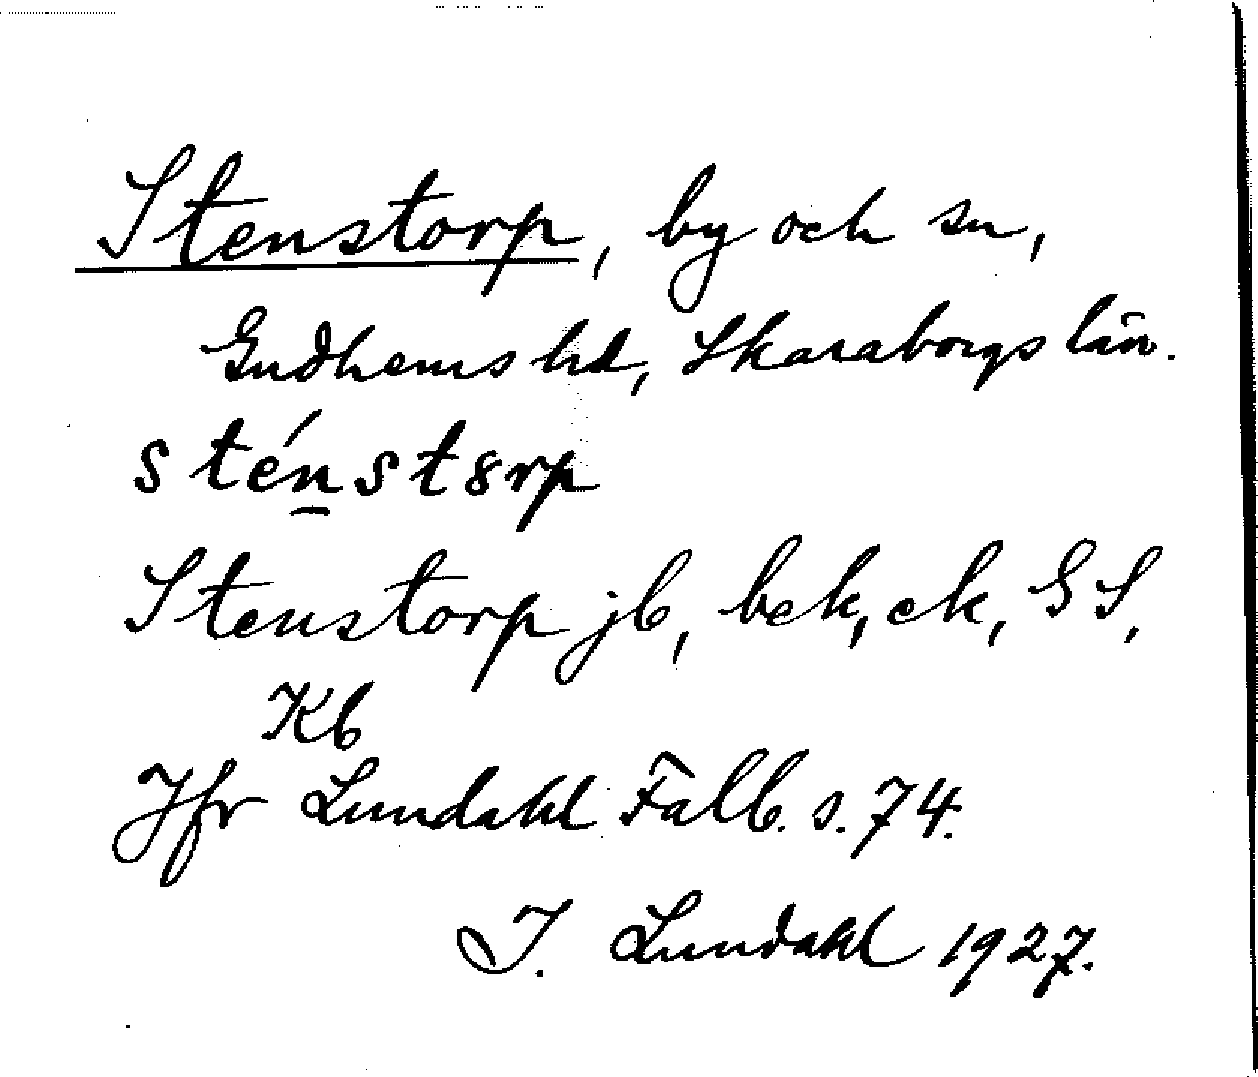 Stenstorp, by och sn,
Gudhems hd, Skaraborgs län.
sténst8rp
Stenstorp jb, bek, ek, GS,
Kb
Jfr Lundahl Falb. s. 74.
I. Lundahl 1927.